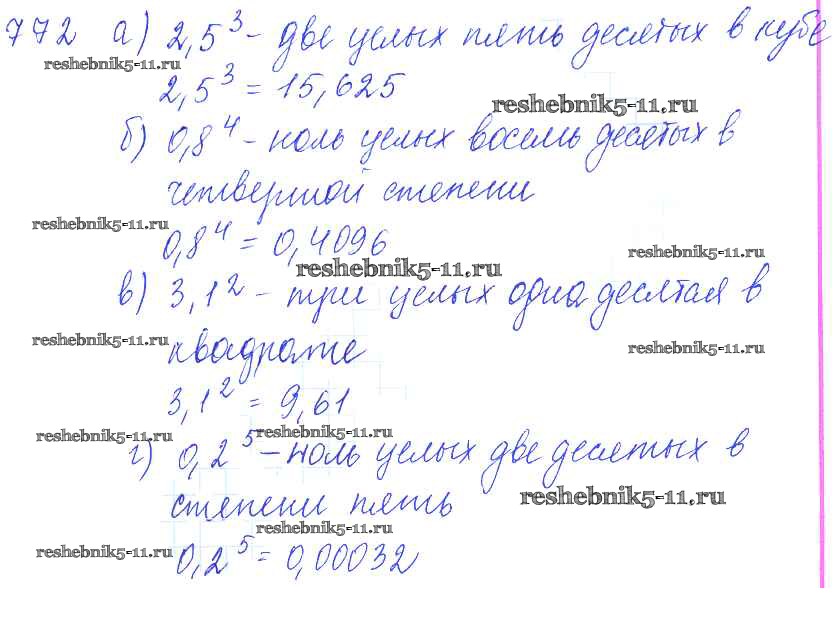 772 а) 2,5³ - две целых пять десятых в кубе
reshebnik5-11.ru
2,5³ = 15,625
reshebnik5-11.ru
б) 0,8⁴ - ноль целых восемь десятых в
четвертой степени
reshebnik5-11.ru
0,8⁴ = 0,4096
reshebnik5-11.ru
reshebnik5-11.ru
в) 3,1² - три целых одна десятая в
reshebnik5-11.ru
квадрате
reshebnik5-11.ru
3,1² = 9,61
reshebnik5-11.ru
reshebnik5-11.ru
г) 0,2⁵ - ноль целых две десятых в
степени пять
reshebnik5-11.ru
reshebnik5-11.ru
reshebnik5-11.ru
0,2⁵ = 0,00032